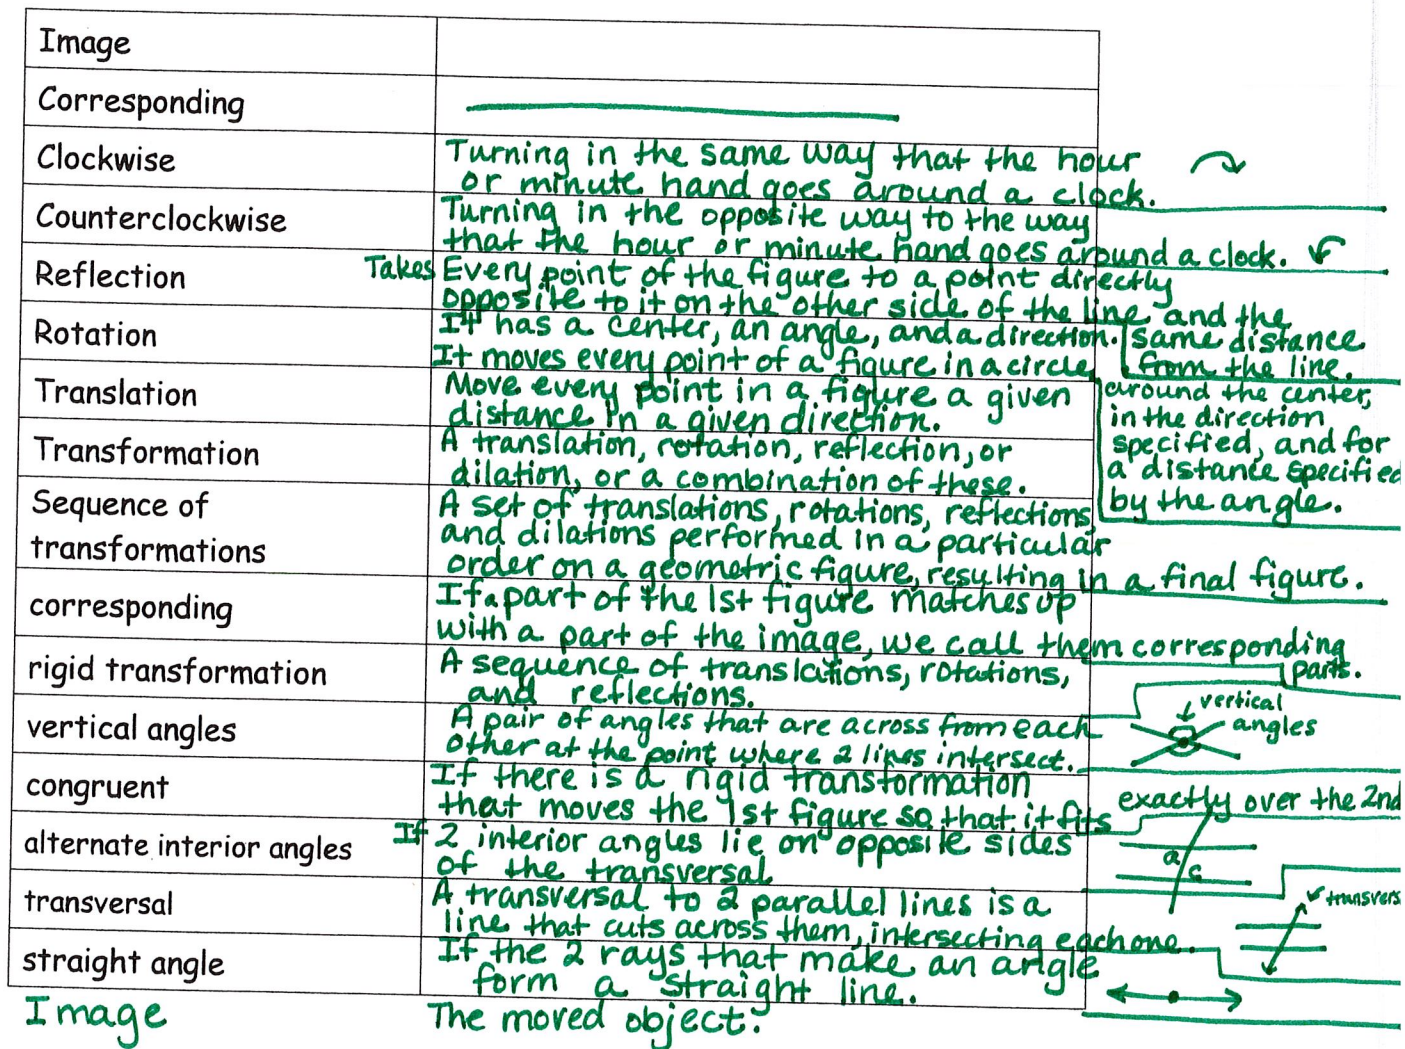 Image
Corresponding
Clockwise Turning in the same way that the hour
or minute hand goes around a clock.
Counterclockwise Turning in the opposite way to the way
that the hour or minute hand goes around a clock.
Reflection Takes Every point of the figure to a point directly
opposite to it on the other side of the line and the
same distance
from the line.
Rotation It has a center, an angle, and a direction.
It moves every point of a figure in a circle
around the center,
in the direction
specified, and for
a distance specified
by the angle.
Translation Move every point in a figure a given
distance in a given direction.
Transformation A translation, rotation, reflection, or
dilation, or a combination of these.
Sequence of A set of translations, rotations, reflections,
transformations and dilations performed in a particular
order on a geometric figure, resulting in a final figure.
corresponding If a part of the 1st figure matches up
with a part of the image, we call them corresponding
parts.
rigid transformation A sequence of translations, rotations,
and reflections.
vertical angles A pair of angles that are across from each
other at the point where 2 lines intersect.
vertical
angles
congruent If there is a rigid transformation
that moves the 1st figure so that it fits
exactly over the 2nd
alternate interior angles If 2 interior angles lie on opposite sides
of the transversal
a
c
transversal A transversal to 2 parallel lines is a
line that cuts across them, intersecting each one.
transvers
straight angle If the 2 rays that make an angle
form a straight line.
Image The moved object.